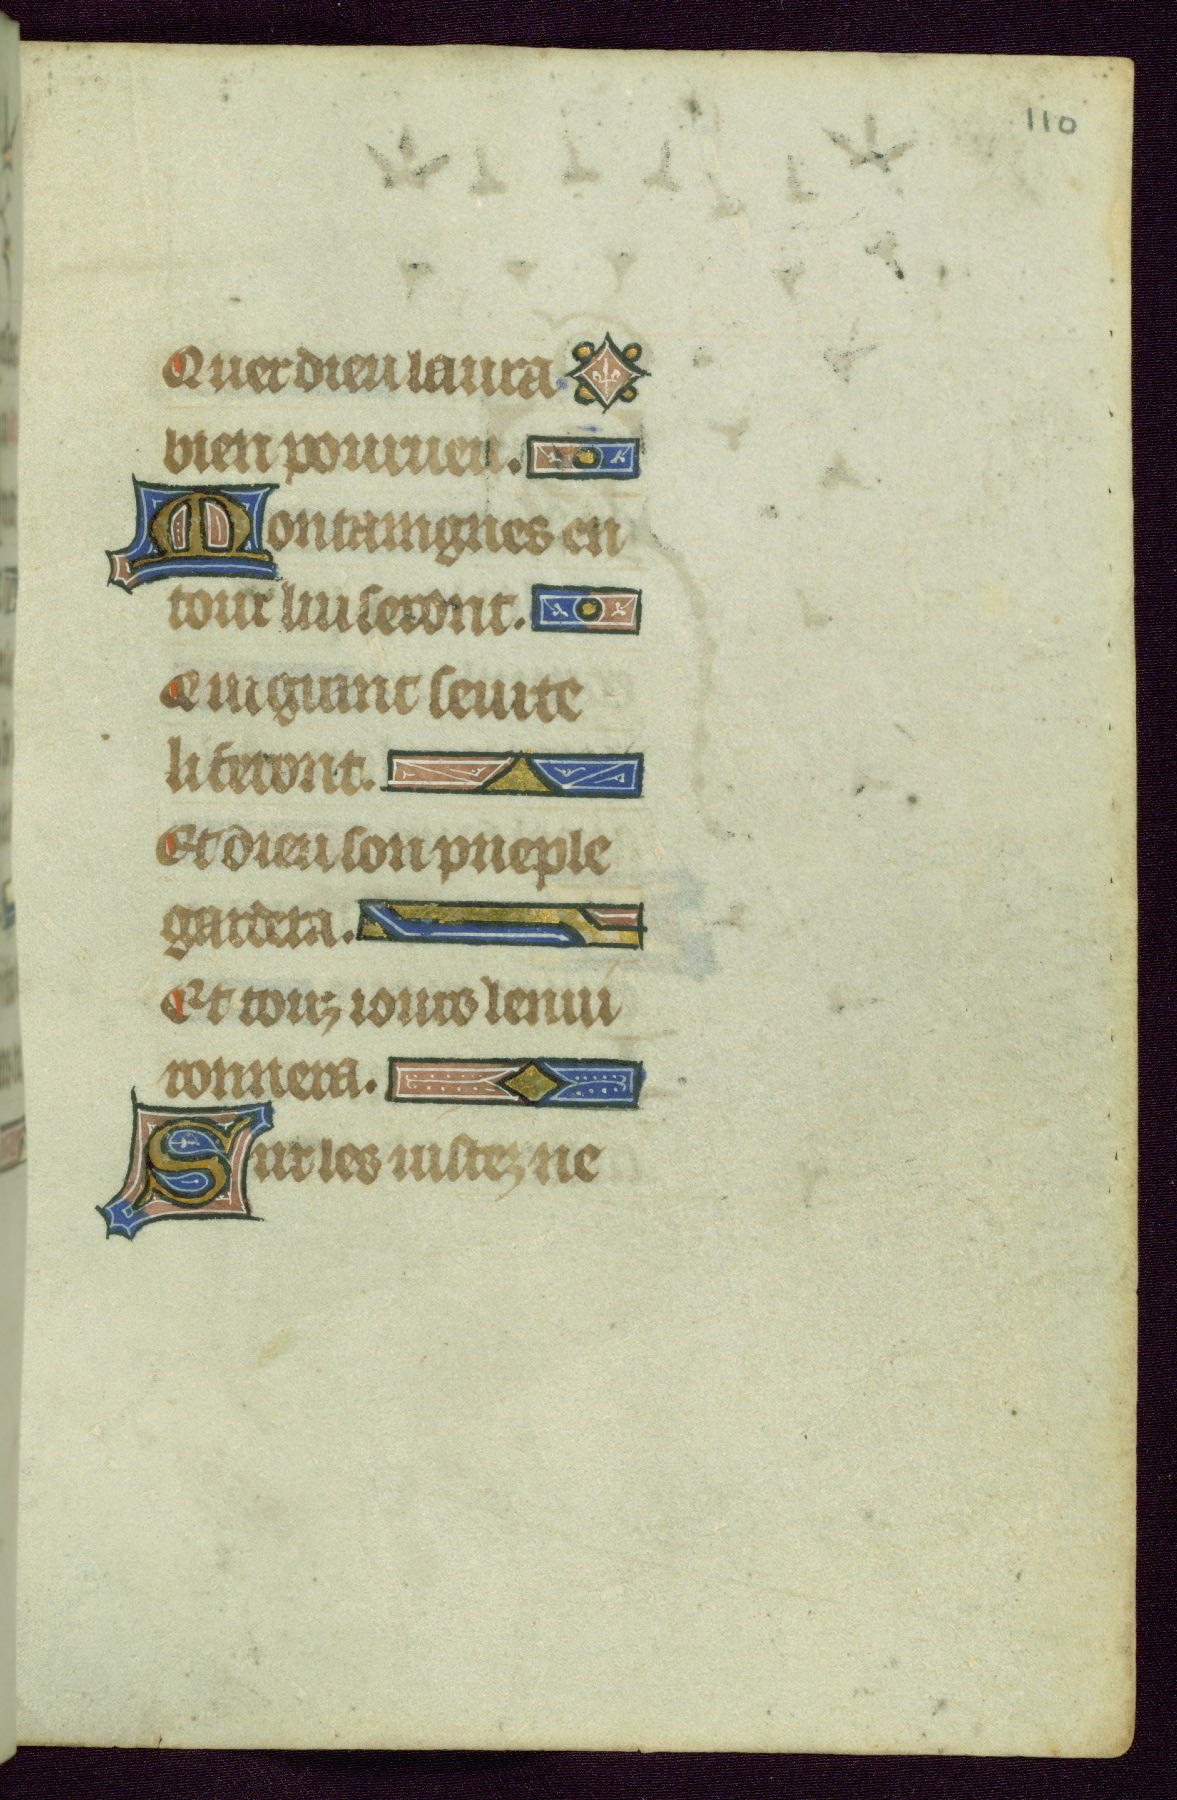 110
Quer dieu laura
bien pourueu.
Montaingnes en
tour lui seront.
Qui grant seurte
li feront.
Et dieu son pueple
gardera.
Et touz iours lenuiu
ronnera.
Sur les iustez ne